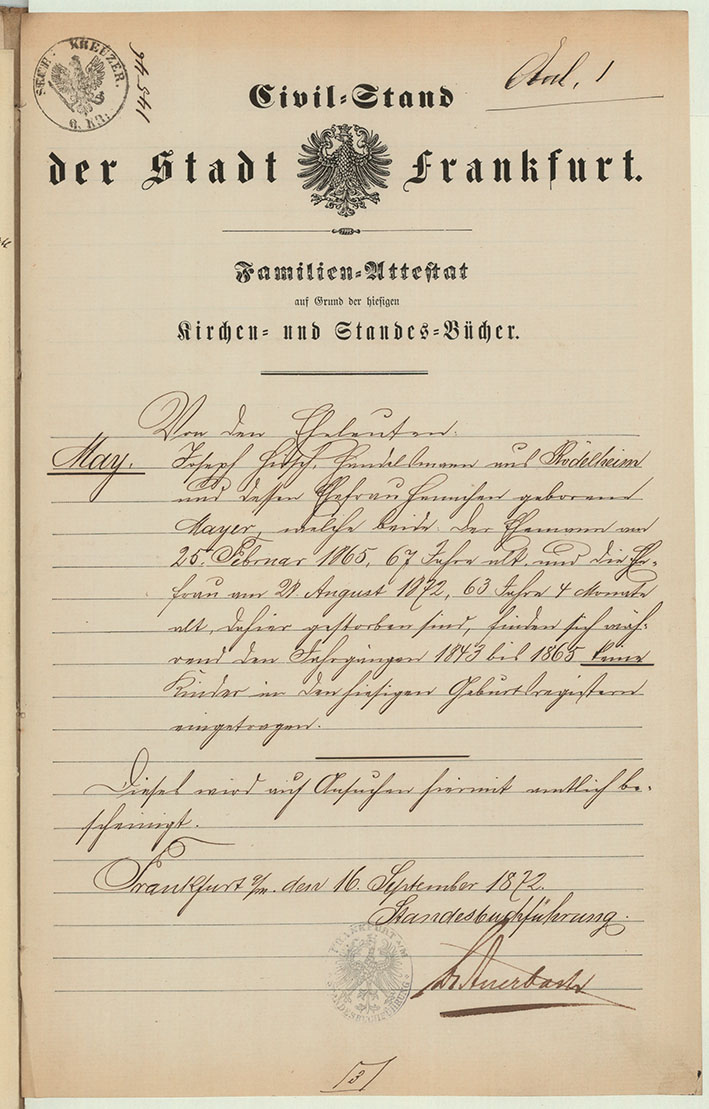 SECH: KREUZER.
6. KR:
Anl. 1
Civil-Stand
der Stadt Frankfurt.
Familien-Attestat
auf Grund der hiesigen
Kirchen- und Standes-Bücher.
Von den Eheleuten:
May. Joseph Hirsch, Handelsmann aus Rödelheim
und dessen Ehefrau Hannchen geborene
Mayer, welche beide: der Ehemann am
25. Februar 1865, 67 Jahre alt, und die Ehe-
frau am 21. August 1872, 63 Jahre 4 Monate
alt, dahier gestorben sind, finden sich wäh-
rend den Jahrgängen 1843 bis 1865 keine
Kinder in den hiesigen Geburtsregistern
eingetragen.
Dieses wird auf Ansuchen hiermit amtlich be-
scheinigt.
Frankfurt a/m. den 16. September 1872.
Standesbuchführung.
FRANKFURT A/M
STANDESBUCHFÜHRUNG
Dr Auerbach
3